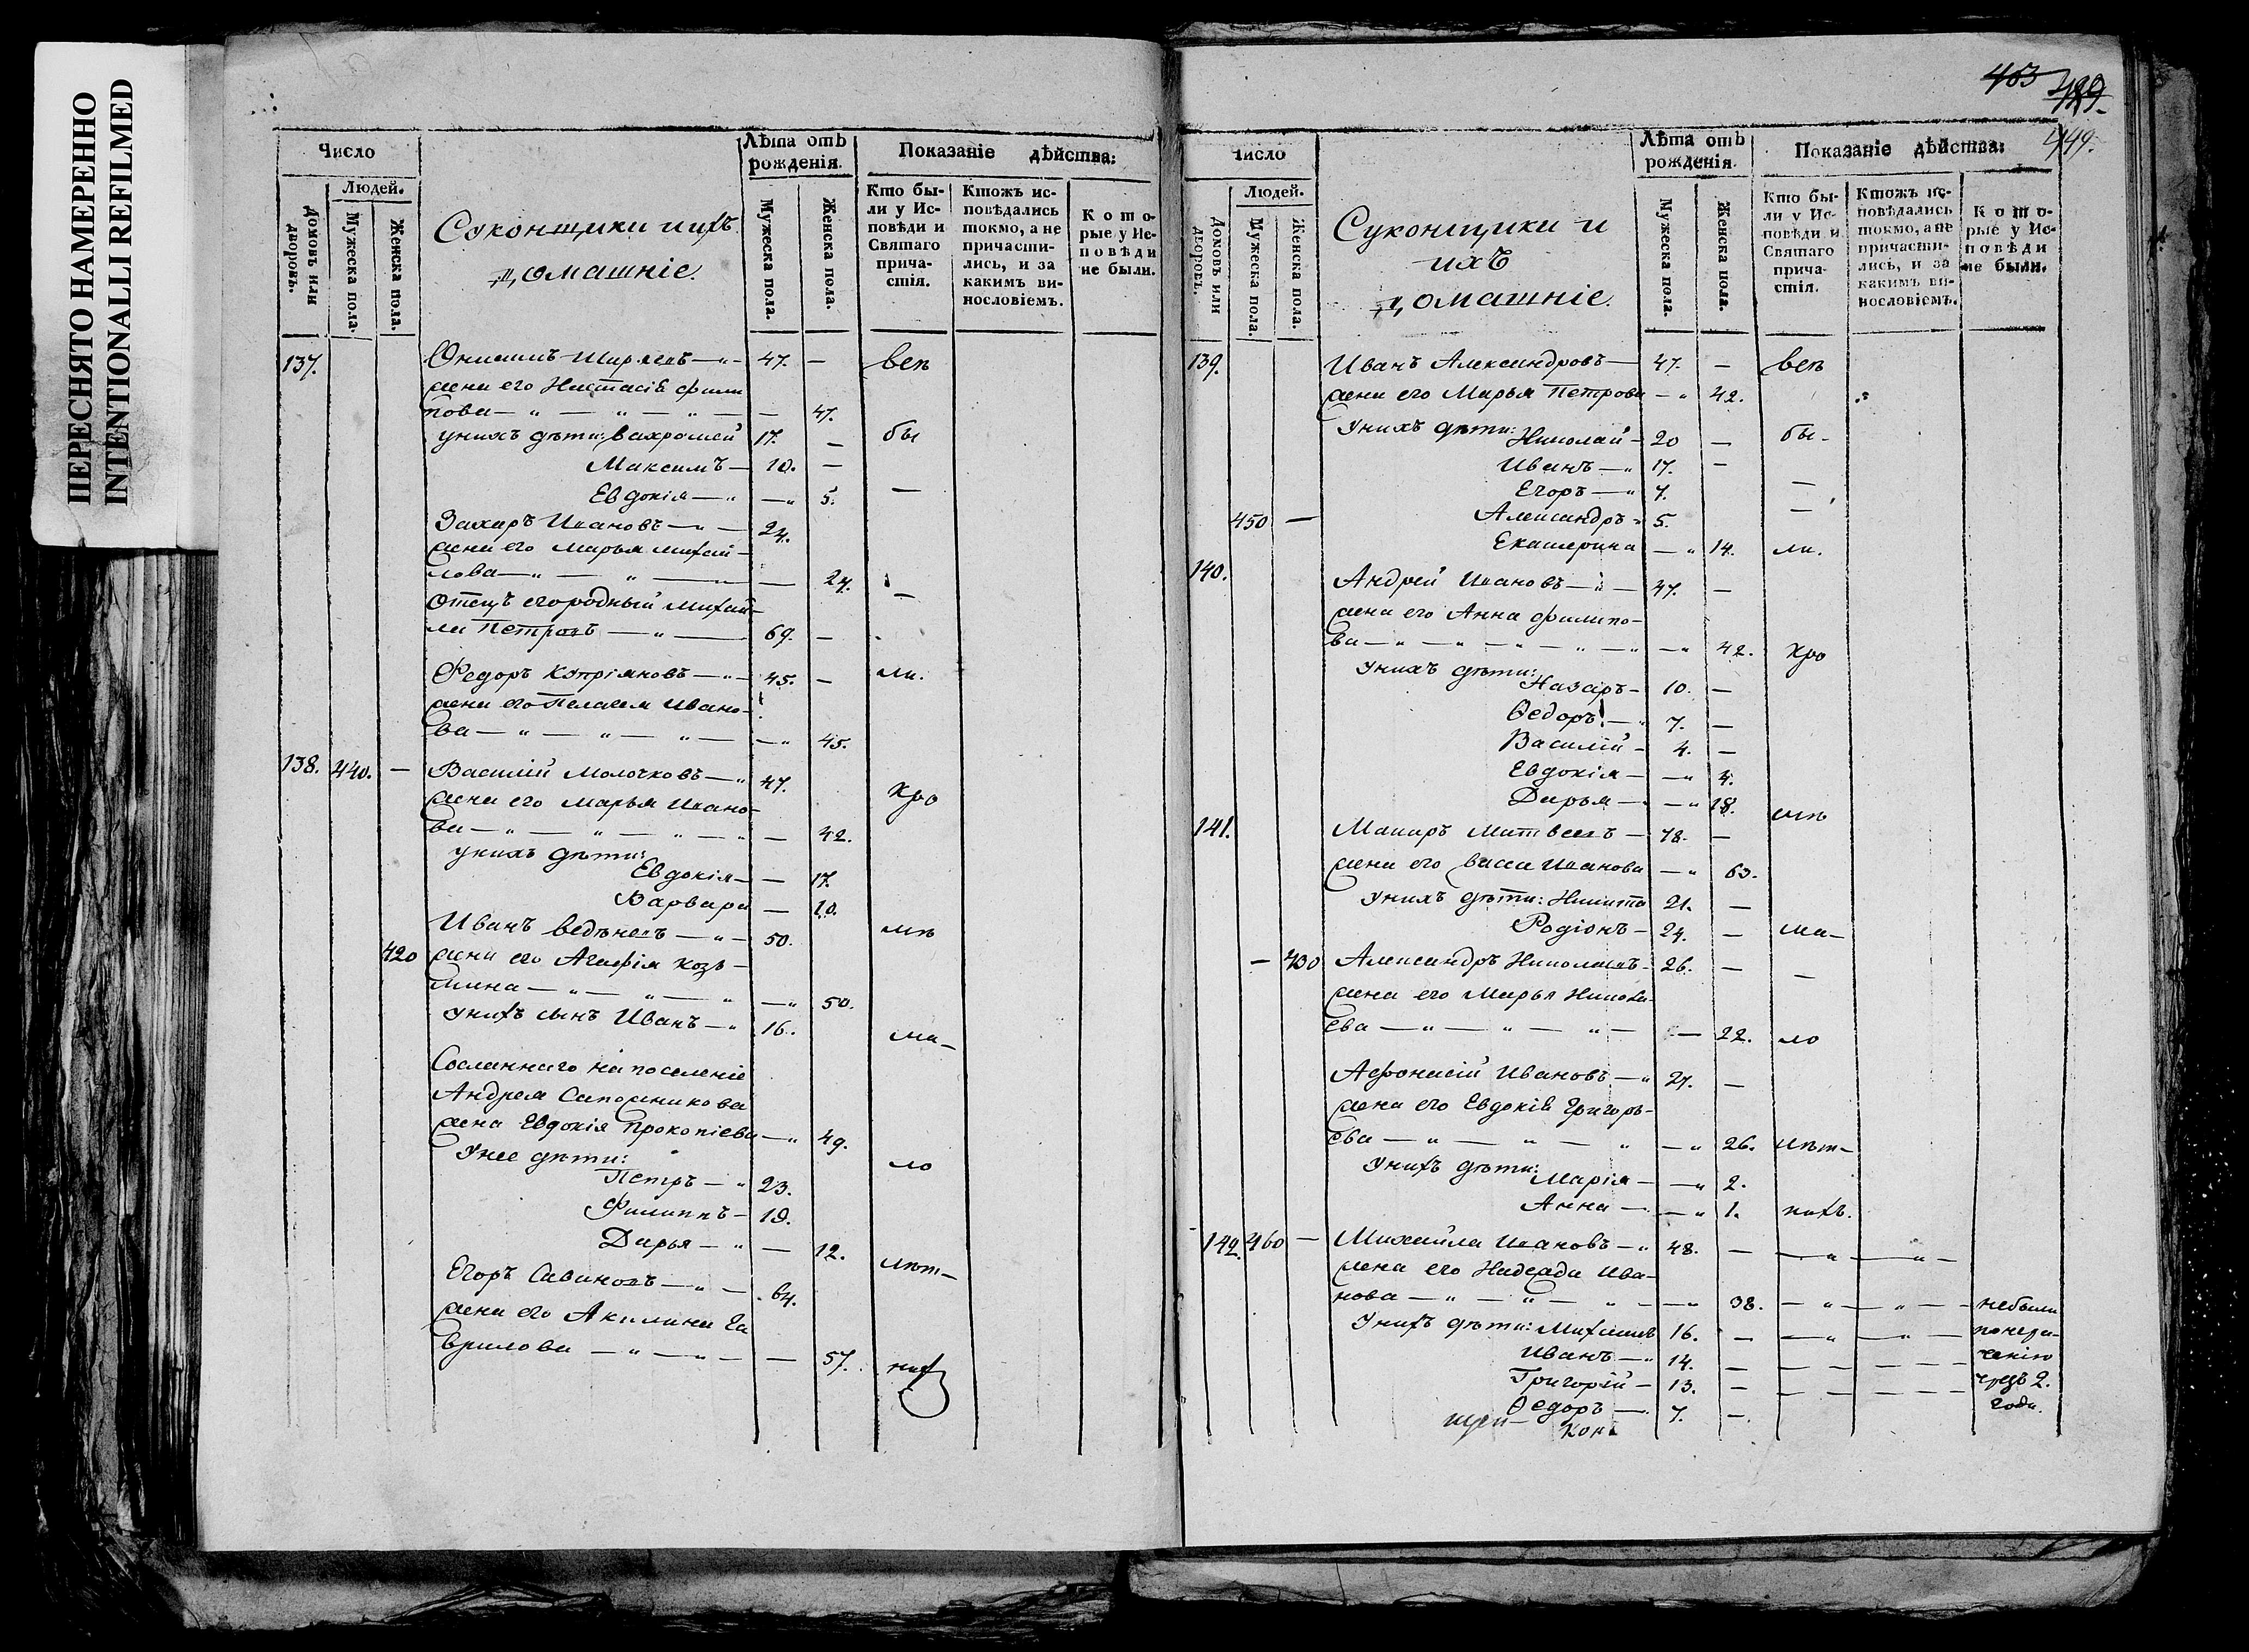 ПЕРЕСНЯТО НАМЕРЕННО
INTENTIONALLI REFILMED
Число
Людей.
Домовъ или дворовъ.
Мужеска пола.
Женска пола.
Суконщики и ихъ
домашніе.
Лѣта отъ рожденія.
Мужеска пола.
Женска пола.
Показаніе дѣйства:
Кто бы-
ли у Ис-
повѣди и
Святаго
прича-
стія.
Ктожъ ис-
повѣдались
токмо, а не
причасти-
лись, и за
какимъ ви-
нословіемъ.
Кото-
рые у Ис-
повѣди
не были.
137. Онисимъ Ширяевъ — 47. — всѣ
жена его Настасія Фили
пова — — 47.
у нихъ дѣти: Вахромей 17. — бы
Максимъ — 10. —
Евдокія — — 5. —
Захаръ Ивановъ — 24.
жена его Марья Михай-
лова — — 24. —
Отецъ его родный Михай-
ла Петровъ — 69. —
Федоръ Кипріяновъ — 45. — ли.
жена его Пелагея Ивано-
ва — — 45.
138. 440. — Василій Молочковъ — 47. кро
жена его Марья Ивано-
ва — — 42.
у нихъ дѣти:
Евдокія — — 17.
Варвара — 10.
Иванъ — 50. мѣ
420 жена его Агафія Козь-
мина — — 50.
у нихъ сынъ Иванъ — 16. ма-
Сосланнаго на поселеніе
Андрея Сапожникова
жена Евдокія Прокопіева — 49.
У нее дѣти: ло
Петръ — 23.
Филиппъ — 19.
Дарья — — 12. лѣт-
Егоръ Савиновъ — 64.
жена его Акилина Га
врилова — — 57. ниχ
403 429.
449.
Число
Людей.
Домовъ или дворовъ.
Мужеска пола.
Женска пола.
Суконщики и
ихъ
домашніе.
Лѣта отъ рожденія.
Мужеска пола.
Женска пола.
Показаніе дѣйства:
Кто бы-
ли у Ис-
повѣди и
Святаго
прича-
стія.
Ктожъ ис-
повѣдались
токмо, а не
причасти-
лись, и за
какимъ ви-
нословіемъ.
Кото-
рые у Ис-
повѣди
не были.
139. Иванъ Александровъ — 47. — всѣ
жена его Марья Петрова — 42.
У нихъ дѣти: Николай — 20 — бы-
Иванъ — 17. —
Егоръ — 7. —
450 — Александръ — 5. —
Екатерина — 14. ли.
140. Андрей Ивановъ — 47. —
жена его Анна Филипо-
ва — — 42. кро
У нихъ дѣти:
Назаръ — 10. —
Ѳедоръ — 7. —
Василій — 4. —
Евдокія — — 4.
Дарья — — 18. мѣ
141. Макаръ Матвеевъ — 78. —
жена его Васса Иванова — 63.
У нихъ дѣти: Никита 21. —
Родіонъ — 24. — ма-
— 430 Александръ Николаевъ — 26. — —
жена его Марья Никола-
ева — — 22. ло
Афонасій Ивановъ — 27. —
жена его Евдокія Григорь-
ева — — 26. лѣт-
У нихъ дѣти:
Марія — — 2.
Анна — — 1. нихъ.
142 460 — Михайла Ивановъ — 48. — — —
жена его Надежда Ива-
нова — — 38. — — небыли
У нихъ дѣти: Михаилъ 16. — — — понера-
Иванъ — 14. — — — ченію
Григорій — 13. — — — чрезъ 2.
Ѳедоръ — 7. — года.